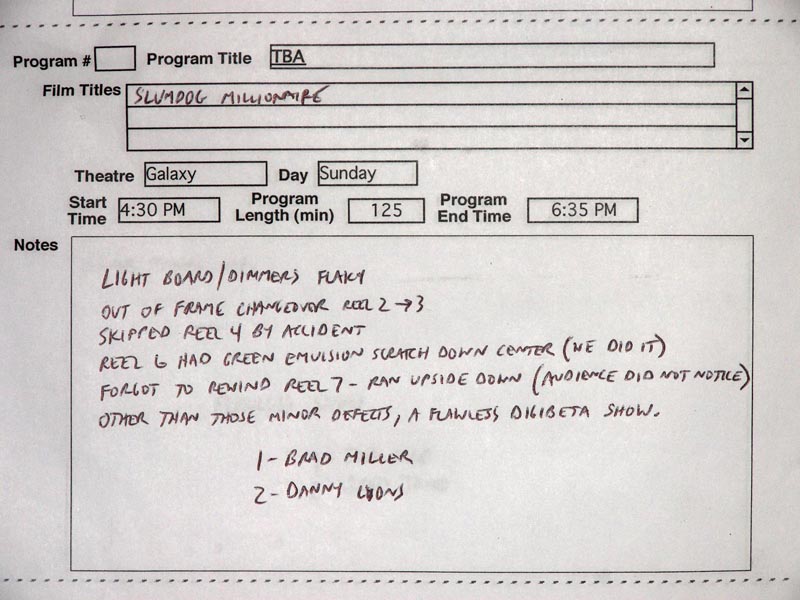 Program # Program Title TBA
Film Titles SLUMDOG MILLIONAIRE
Theatre Galaxy Day Sunday
Start Time 4:30 PM Program Length (min) 125 Program End Time 6:35 PM
Notes
LIGHT BOARD/DIMMERS FLAKY
OUT OF FRAME CHANGEOVER REEL 2→3
SKIPPED REEL 4 BY ACCIDENT
REEL 6 HAD GREEN EMULSION SCRATCH DOWN CENTER (WE DID IT)
FORGOT TO REWIND REEL 7 - RAN UPSIDE DOWN (AUDIENCE DID NOT NOTICE)
OTHER THAN THOSE MINOR DEFECTS, A FLAWLESS DIGIBETA SHOW.
1 - BRAD MILLER
2 - DANNY LYONS